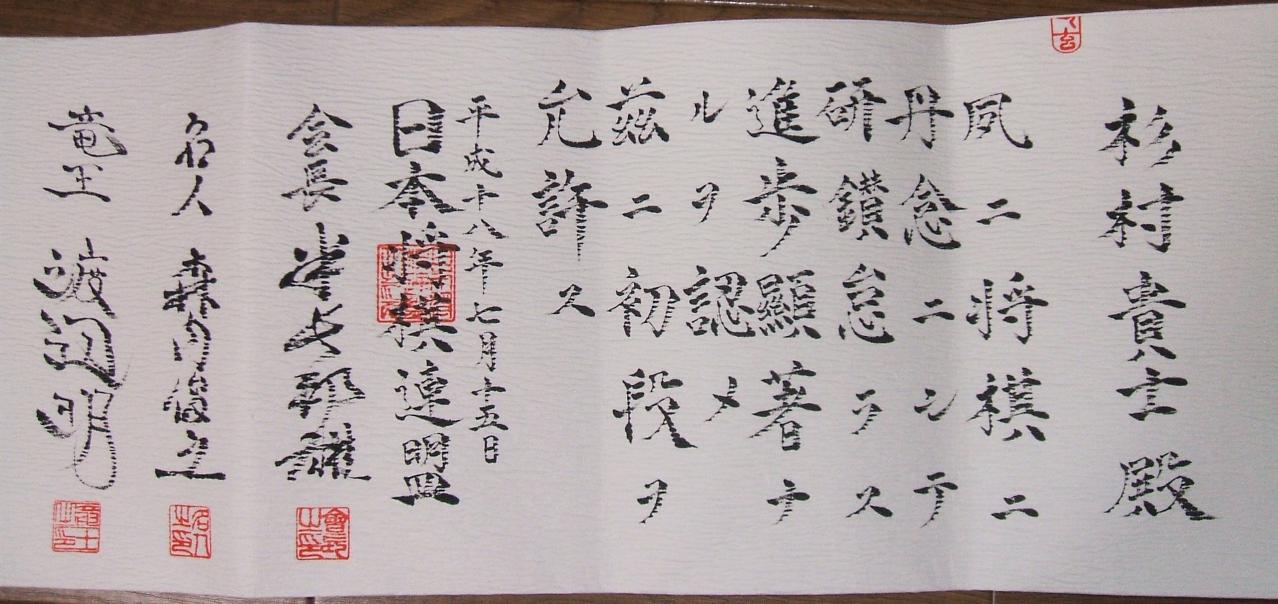 杉村貴士殿
夙ニ将棋ニ
丹念ニシテ
研鑚怠ラス
進歩顯著ナ
ルヲ認メ
茲ニ初段ヲ
允許ス
平成十八年七月十五日
日本将棋連盟
会長 米長邦雄
名人 森内俊之
竜王 渡辺明